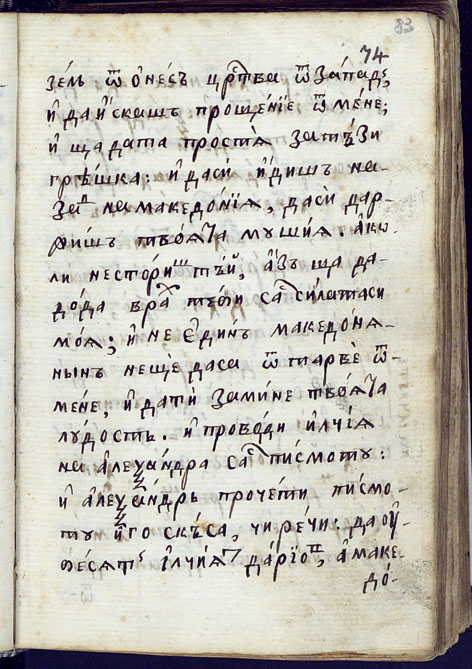 83
74
зе́мь ѿ о҆́несъ црⷭ҇тва ѿ за́падъ,
и҆ даи҆́скашъ проще́нїе ѿ ме́не;
и҆ щадата простѧ̀ затѣ́зи
грѣ́шка: и҆ даси́ и҆́дишъ на-
заⷣ намакедо́нїѧ, даси́ дар-
жишъ твоѧта мꙋшїѧ. а҆ко-
ли несто́ришъ тъй, а҆́зъ ща да-
до́да враⷯ тебѝ саⷭ҇ силатаси
моѧ; и҆ не є҆ди́нъ македо́нѧ-
нинъ неще́ даса ѿтарвѐ ѿ-
ме́не, и҆ дати̑ зами́не твоѧта
лꙋ́дость. и҆ прово́ди и҆лчїѧ
на а҆леѯа́ндра саⷭ҇ писмотꙋ:
и҆ а҆леѯа́ндрь прочети писмо-
тꙋ и҆го скъса, чи ре́чи: да ѹ҆-
бесѧтъ и҆лчїѧ да́рїоⷡ, а҆ маке-
до́-